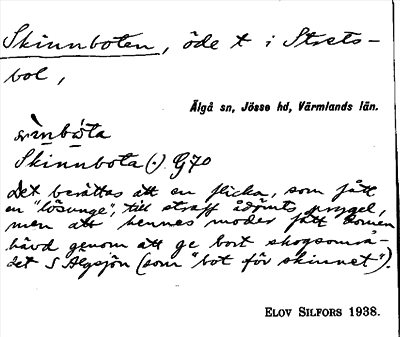 Skinnboten, öde t i Strets-
bol,
Älgå sn, Jösse hd, Värmlands län.
Skinnbota (.) G70
Det berättas att en flicka, som fått
en "lösunge", till straff ådömts prygel,
men att hennes moder fått domen
hävd genom att ge bort skogsområ-
det S Algsjön (som "bot för skinnet").
ELOV SILFORS 1938.